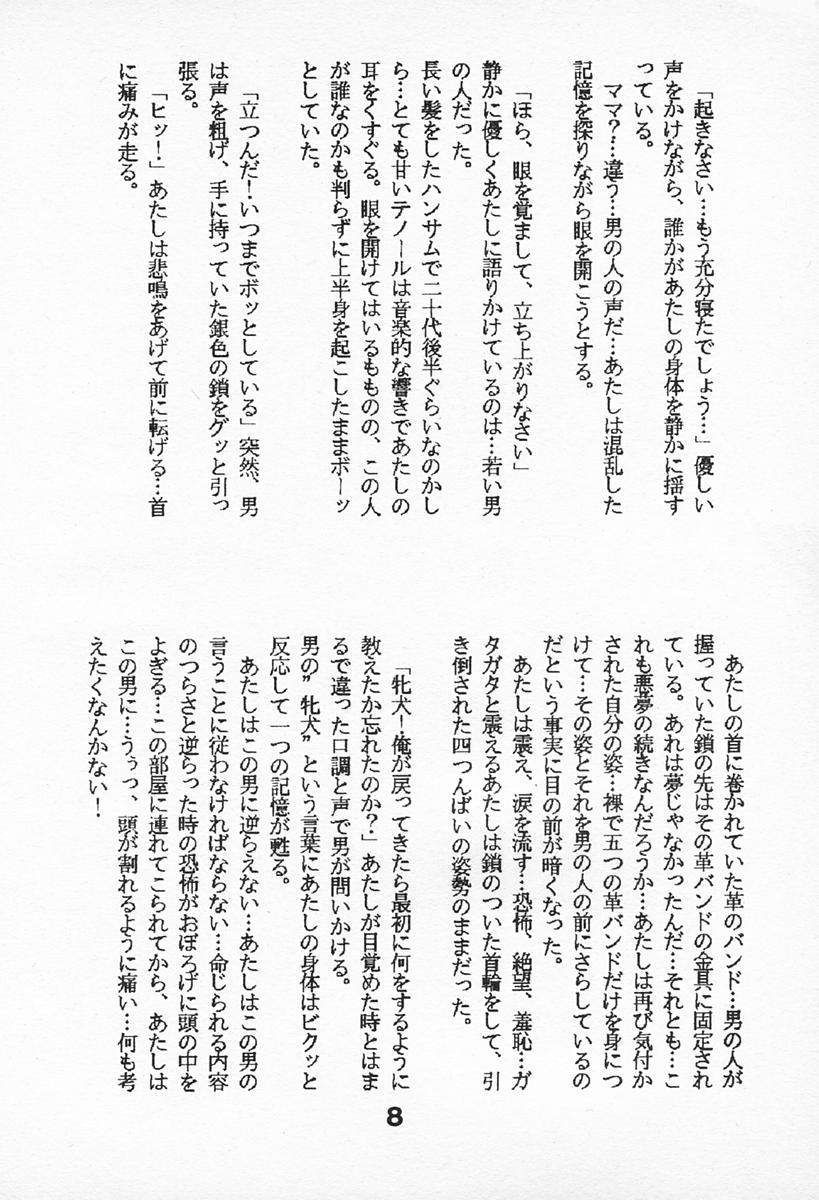 「起きなさい…もう充分寝たでしょう…」優しい
声をかけながら、誰かがあたしの身体を静かに揺す
っている。
ママ?…違う…男の人の声だ…あたしは混乱した
記憶を探りながら眼を開こうとする。
「ほら、眼を覚まして、立ち上がりなさい」
静かに優しくあたしに語りかけているのは…若い男
の人だった。
長い髪をしたハンサムで二十代後半ぐらいなのかし
ら…とても甘いテノールは音楽的な響きであたしの
耳をくすぐる。眼を開けてはいるもものの、この人
が誰なのかも判らずに上半身を起こしたままボーッ
としていた。
「立つんだ!いつまでボッとしている」突然、男
は声を粗げ、手に持っていた銀色の鎖をグッと引っ
張る。
「ヒッ!」あたしは悲鳴をあげて前に転げる…首
に痛みが走る。
あたしの首に巻かれていた革のバンド…男の人が
握っていた鎖の先はその革バンドの金具に固定され
ている。あれは夢じゃなかったんだ…それとも…こ
れも悪夢の続きなんだろうか…あたしは再び気付か
された自分の姿…裸で五つの革バンドだけを身につ
けて…その姿とそれを男の人の前にさらしているの
だという事実に目の前が暗くなった。
あたしは震え、涙を流す…恐怖、絶望、羞恥…ガ
タガタと震えるあたしは鎖のついた首輪をして、引
き倒された四つんばいの姿勢のままだった。
「牝犬!俺が戻ってきたら最初に何をするように
教えたか忘れたのか?」あたしが目覚めた時とはま
るで違った口調と声で男が問いかける。
男の”牝犬”という言葉にあたしの身体はビクッと
反応して一つの記憶が甦る。
あたしはこの男に逆らえない…あたしはこの男の
言うことに従わなければならない…命じられる内容
のつらさと逆らった時の恐怖がおぼろげに頭の中を
よぎる…この部屋に連れてこられてから、あたしは
この男に…うぅっ、頭が割れるように痛い…何も考
えたくなんかない!
8